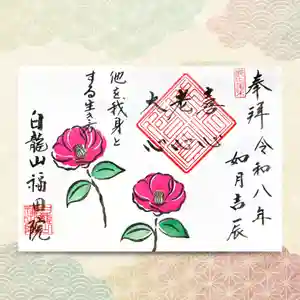 奉拝 令和八年
如月吉辰
喜心
老心
大心
他を我身と
する生き
白龍山福田院